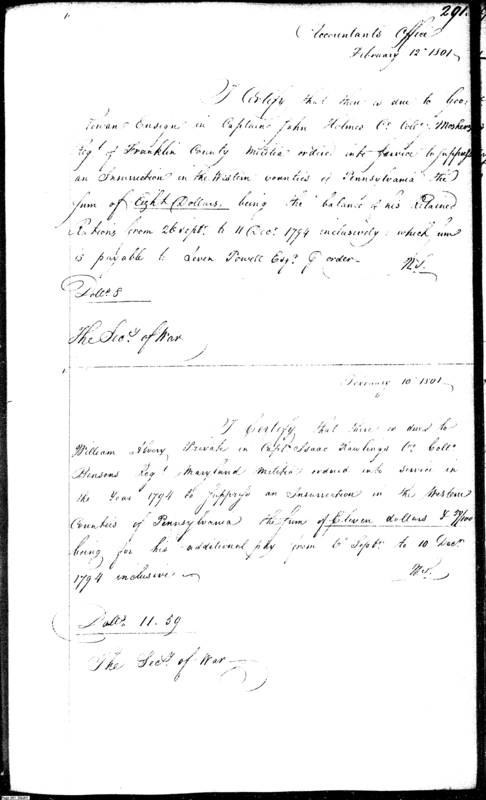 291
Accountants Office
February 12th 1801
I Certify that there is due to Geo:
Towar Ensign in Captain John Holmes Co. Colo.
Regt. of Franklin County Militia ordered into Service to suppress
an Insurrection in the Western counties of Pennsylvania the
sum of Eight Dollars, being the balance of his Retained
Rations from 26 Septr. to 11 Decr. 1794 inclusively: which sum
is payable to Leven Powell Esqr. or order
Dollrs. 8
The Secy. of War
February 10th 1801
I Certify, that there is due to
William Private in Captn. Isaac Rawlings Co. Collo.
Bensons Regt. Maryland Militia ordered into service in
the Year 1794 to suppress an Insurrection in the Western
Counties of Pennsylvania the sum of Eleven dollars & 59/100
being for his additional pay from Septr. to 10 Decr.
1794 inclusive
Dollrs. 11.59
The Secy. of War